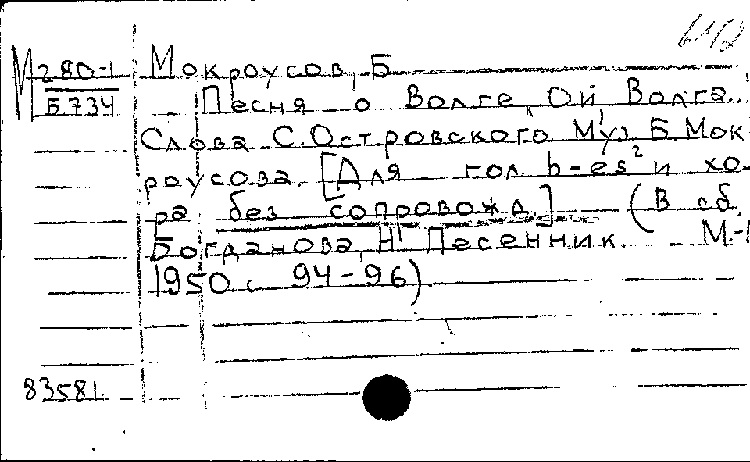 М280-1 Мокроусов, Б
Б.734 Песня о Волге, Ой Волга...
Слова С. Островского Муз. Б. Мок
роусова. [Для гол h-es² и хо-
ра без сопровожд.] (В сб.
Богданова, Н. Песенник. М.-
1950 с. 94-96)
83581